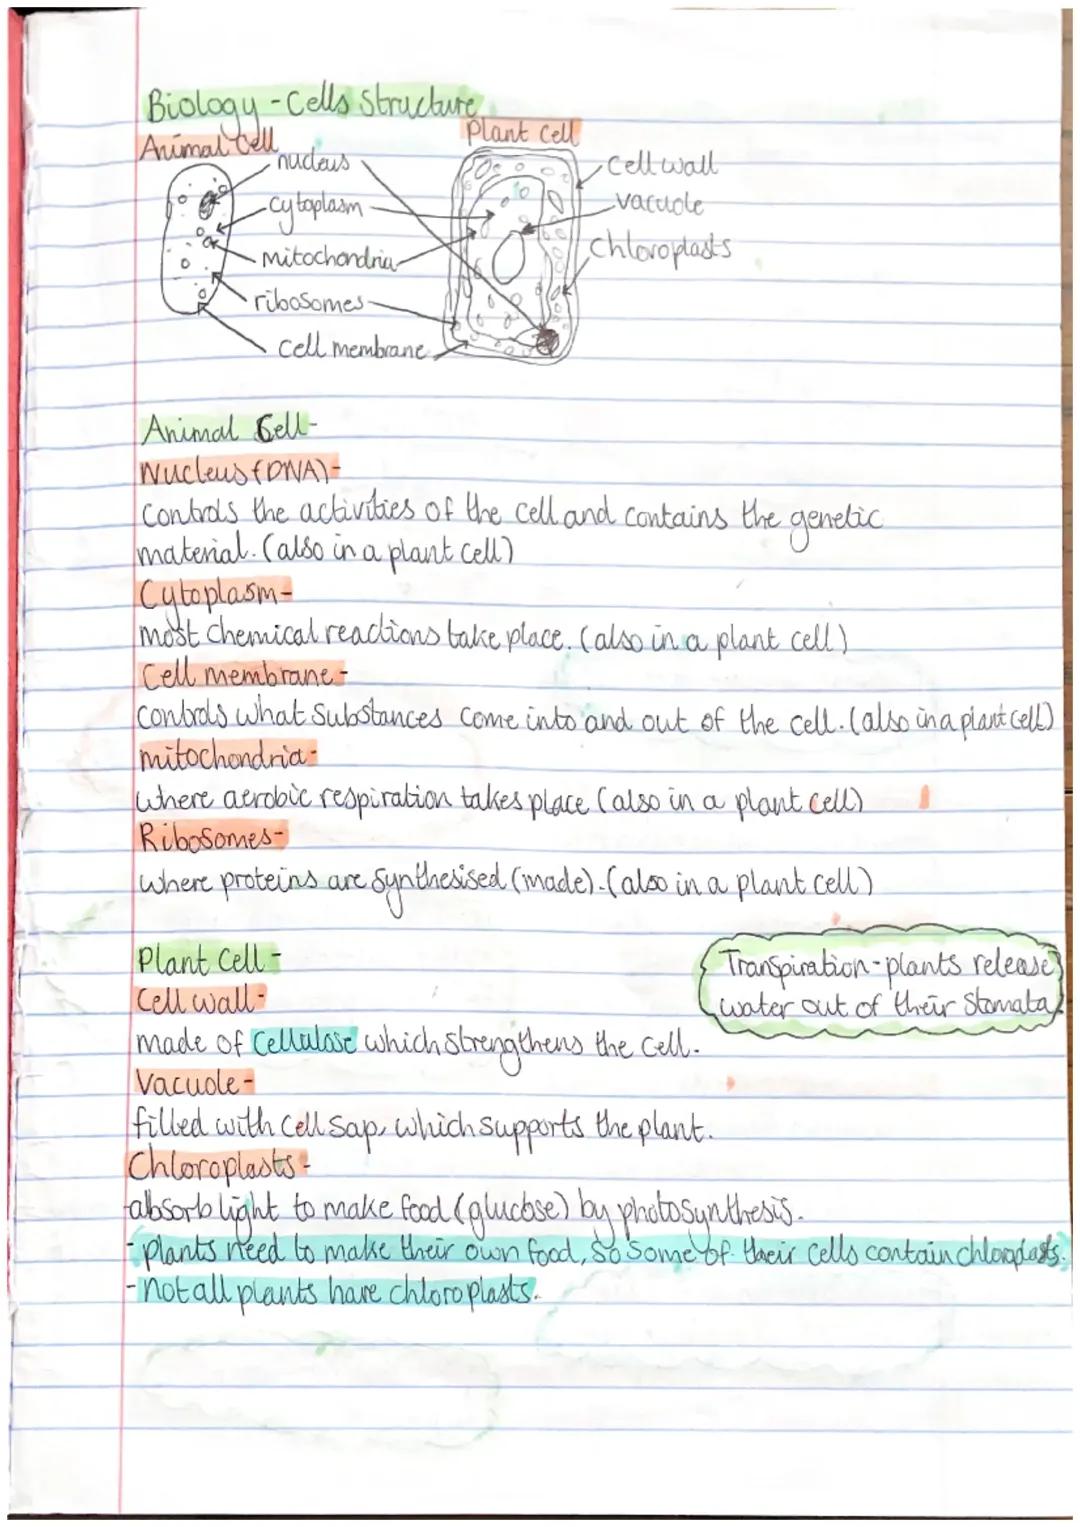 Biology - Cells Structure
Animal Cell
Plant Cell
nucleus
cytoplasm
mitochondria
ribosomes
cell membrane
Cell wall
vacuole
Chloroplasts
Animal Cell-
Nucleus (DNA)-
Controls the activities of the cell and contains the genetic
material. (also in a plant cell)
Cytoplasm-
most chemical reactions take place. (also in a plant cell)
Cell membrane-
Controls what substances come into and out of the cell. (also in a plant cell)
mitochondria-
where aerobic respiration takes place (also in a plant cell)
Ribosomes-
where proteins are synthesised (made). (also in a plant cell)
Plant Cell-
Transpiration - plants release
water out of their stomata
Cell wall-
made of Cellulose which strengthens the cell.
Vacuole-
filled with cell sap, which supports the plant.
Chloroplasts-
absorb light to make food (glucose) by photosynthesis.
- plants need to make their own food, so some of their cells contain chloroplasts.
- not all plants have chloroplasts.